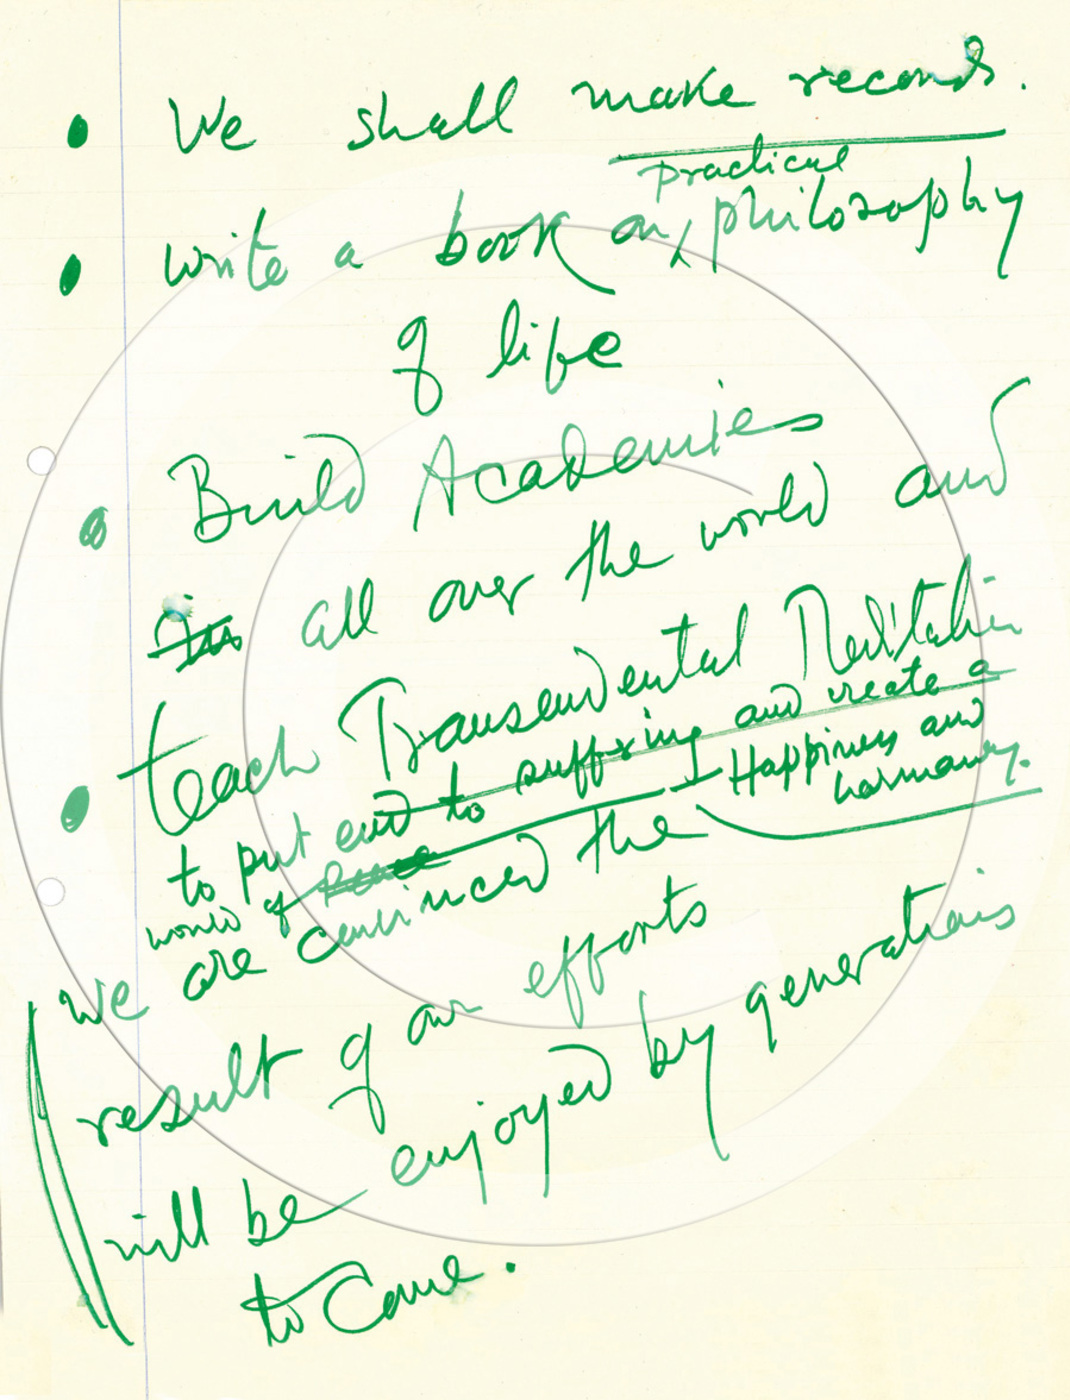 • We shall make records.
practical
• write a book on philosophy
of life
• Build Academies
all over the world and
• teach Transendental Meditation
to put end to suffering and create a
world of Happiness and
harmony.
We are convinced the
result of our efforts
will be enjoyed by generations
to Come.